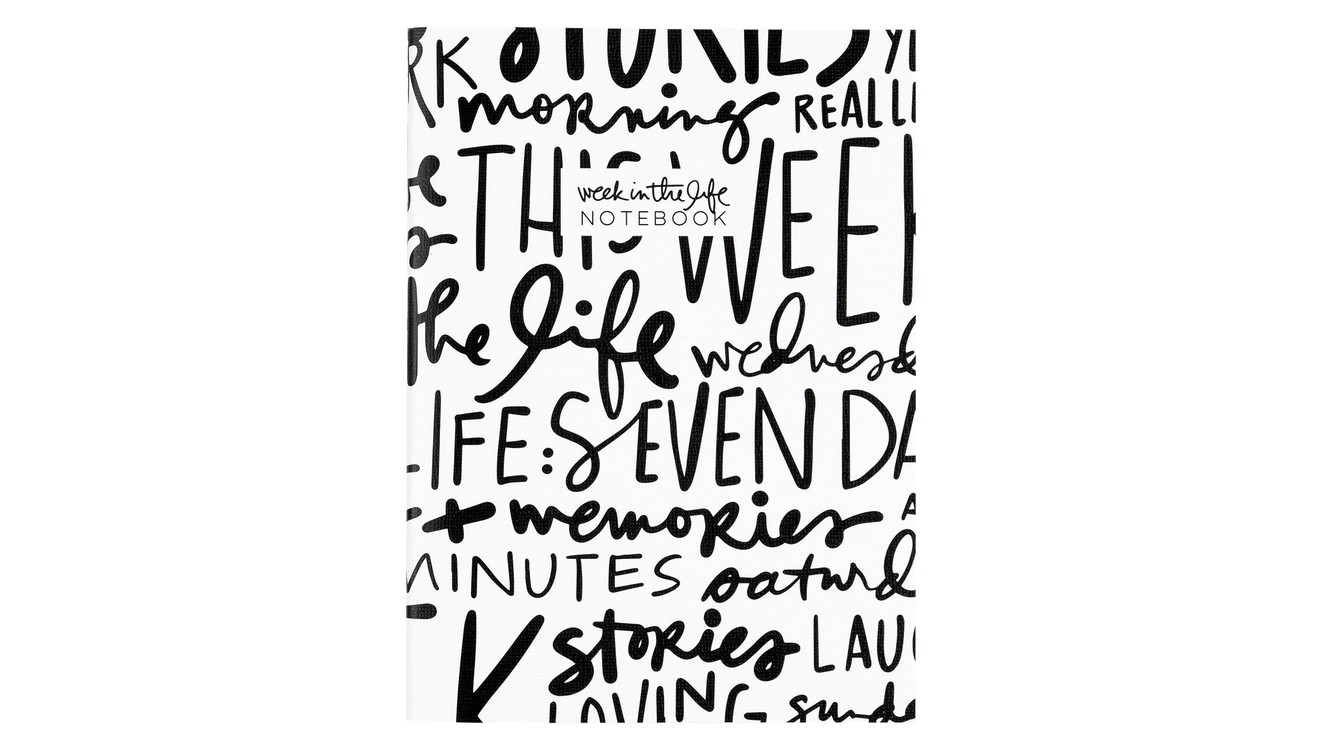 RK STORIES
morning REALLI
THIS WEEK
week in the life
NOTEBOOK
the life wednesd
LIFE: SEVEN DA
+ memories A
MINUTES saturd
K stories LAUG
LOVING sunda